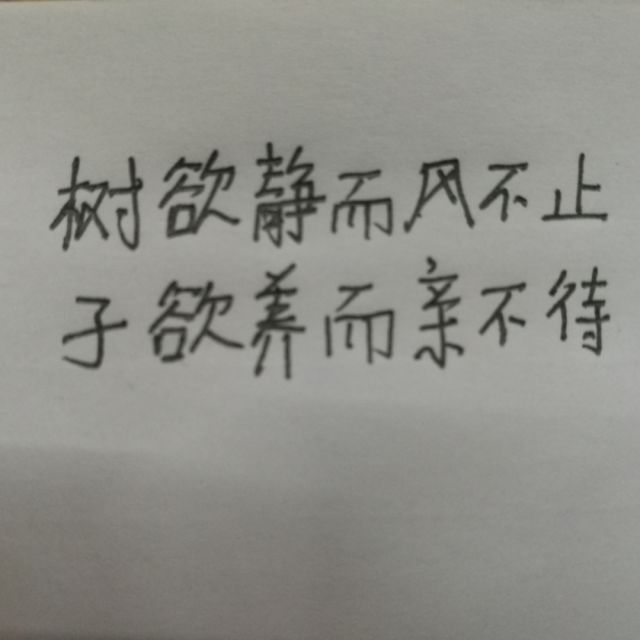 树欲静而风不止
子欲养而亲不待